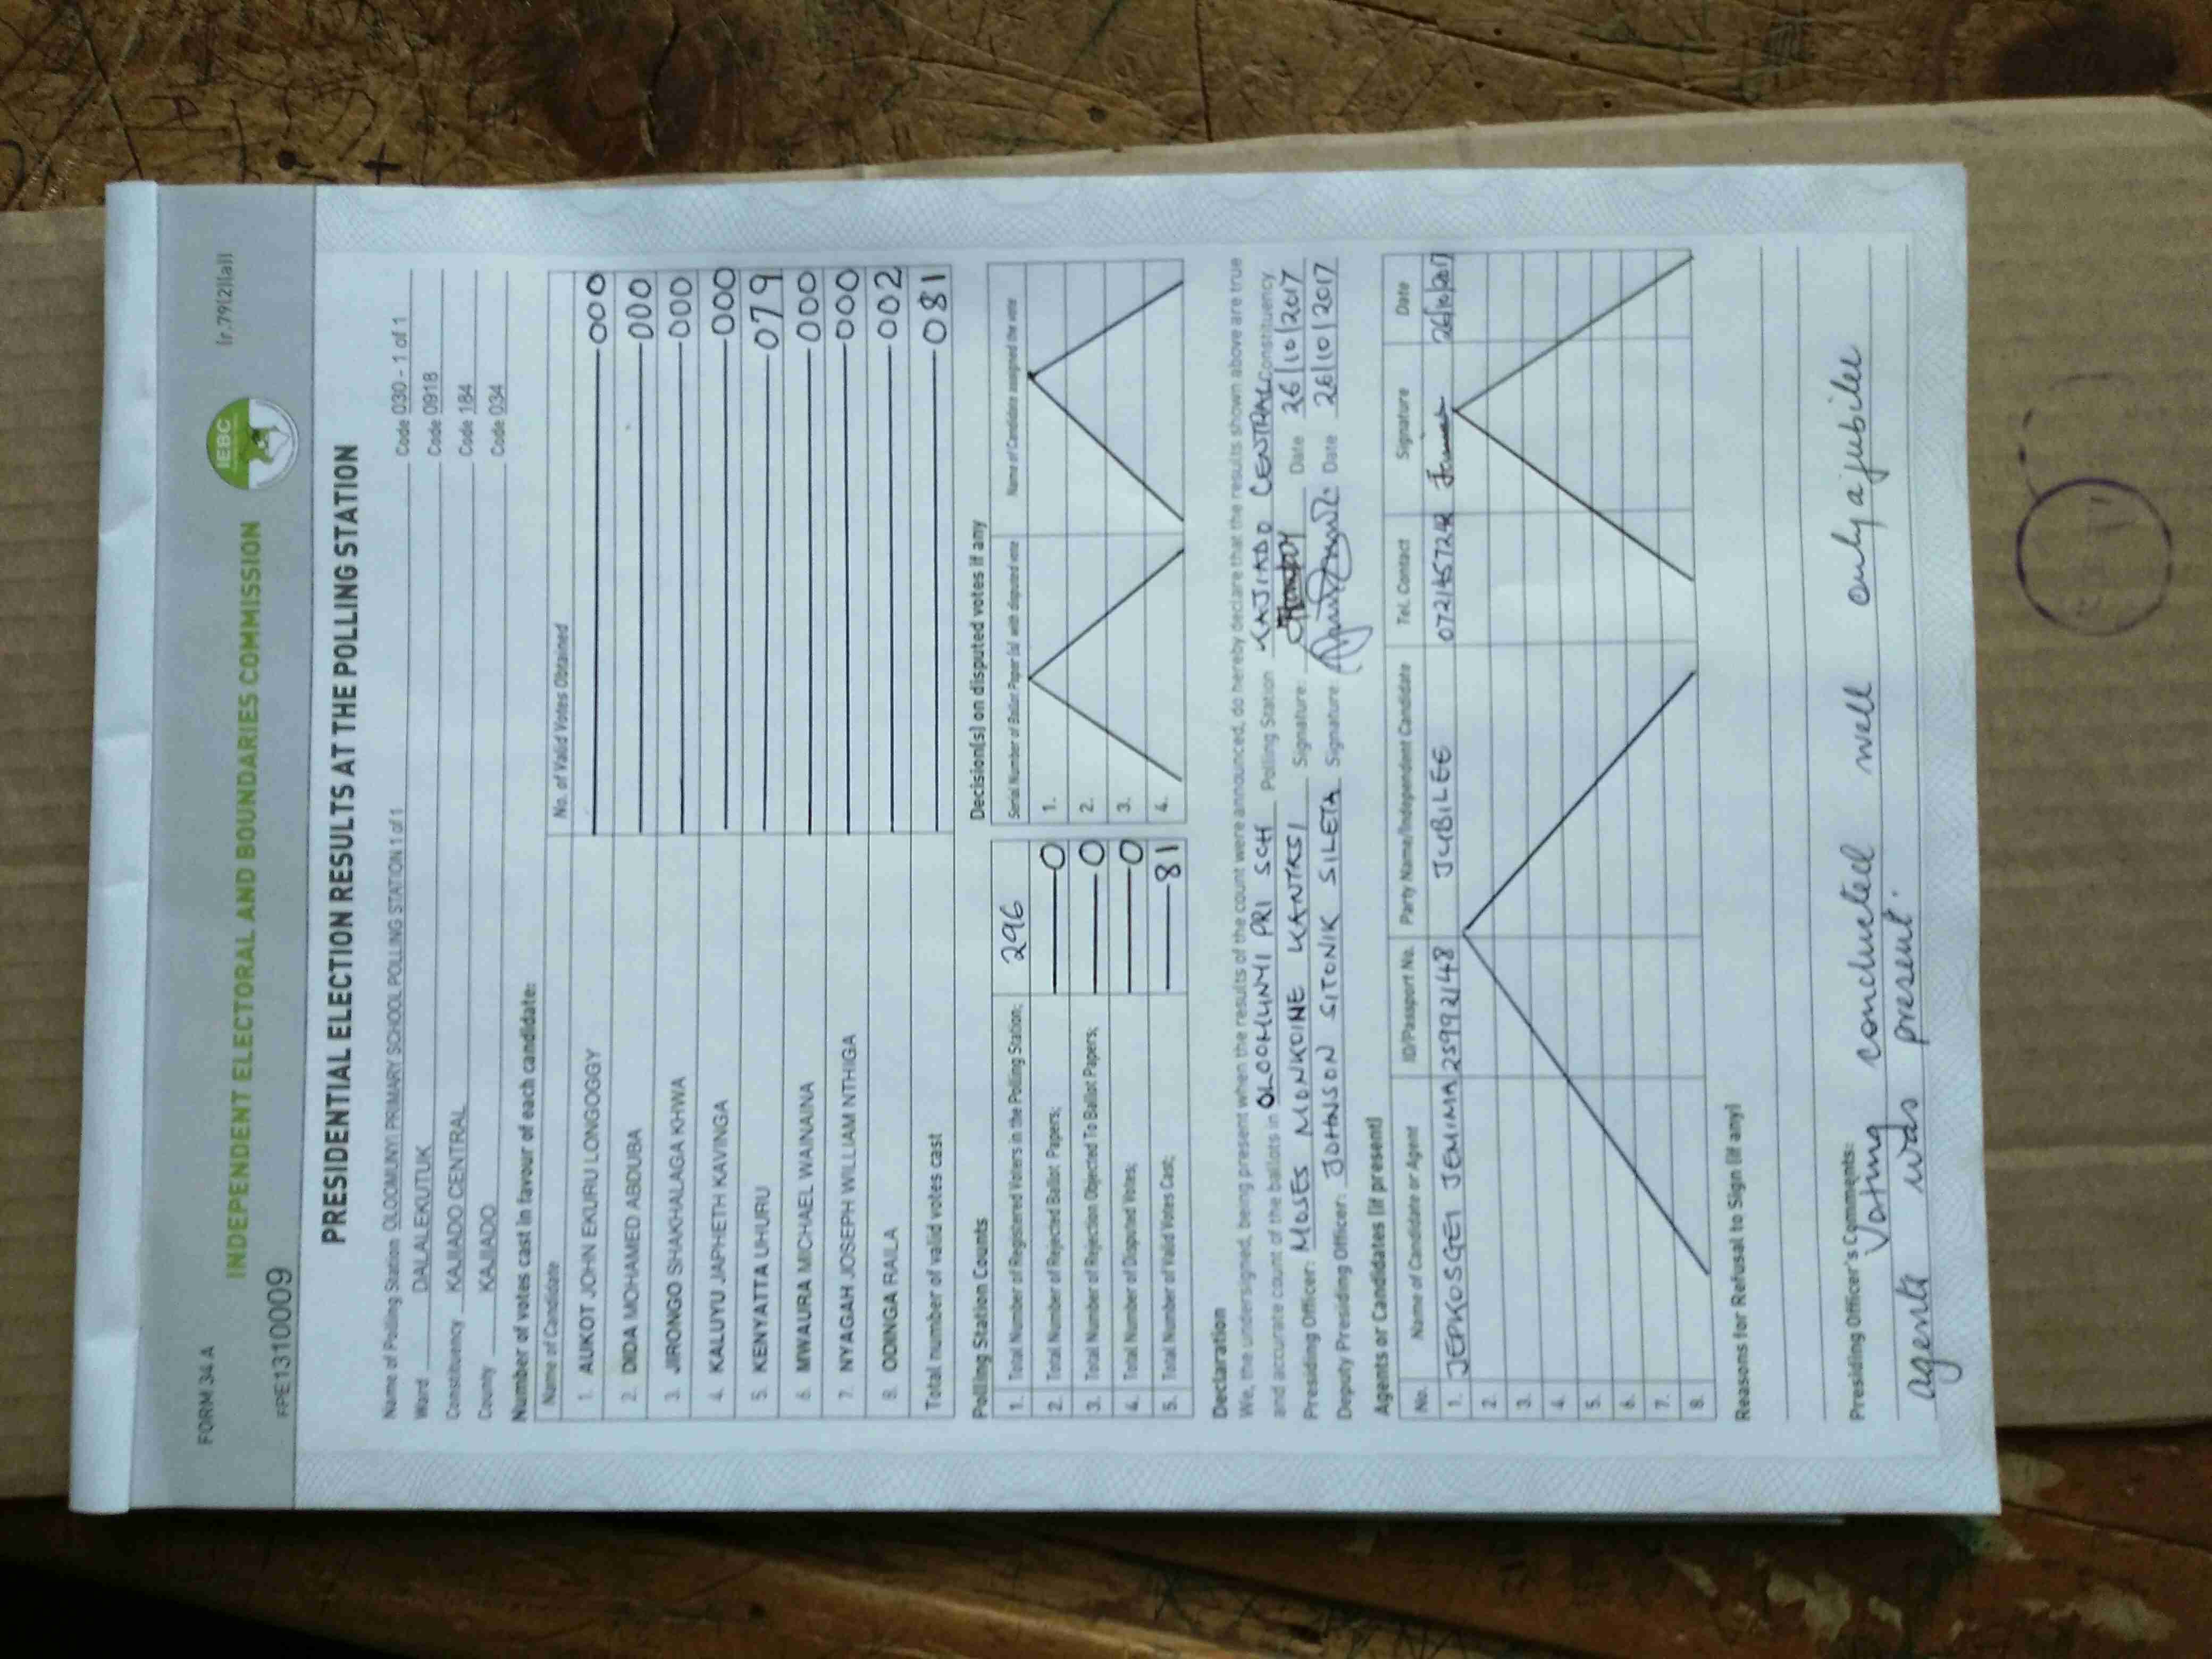 FORM 34 A
(r.79(2)(a))
INDEPENDENT ELECTORAL AND BOUNDARIES COMMISSION
IEBC
FPE1310009
PRESIDENTIAL ELECTION RESULTS AT THE POLLING STATION
Name of Polling Station OLOOMUNYI PRIMARY SCHOOL POLLING STATION 1 of 1 Code 030 - 1 of 1
Ward DALALEKUTUK Code 0918
Constituency KAJIADO CENTRAL Code 184
County KAJIADO Code 034
Number of votes cast in favour of each candidate:
Name of Candidate No. of Valid Votes Obtained
1. AUKOT JOHN EKURU LONGOGGY 000
2. DIDA MOHAMED ABDUBA 000
3. JIRONGO SHAKHALAGA KHWA 000
4. KALUYU JAPHETH KAVINGA 000
5. KENYATTA UHURU 079
6. MWAURA MICHAEL WAINAINA 000
7. NYAGAH JOSEPH WILLIAM NTHIGA 000
8. ODINGA RAILA 002
Total number of valid votes cast 081
Polling Station Counts
1. Total Number of Registered Voters in the Polling Station; 296
2. Total Number of Rejected Ballot Papers; 0
3. Total Number of Rejection Objected To Ballot Papers; 0
4. Total Number of Disputed Votes; 0
5. Total Number of Valid Votes Cast; 81
Decision(s) on disputed votes if any
Serial Number of Ballot Paper (s) with disputed vote Name of Candidate assigned the vote
1.
2.
3.
4.
Declaration
We, the undersigned, being present when the results of the count were announced, do hereby declare that the results shown above are true
and accurate count of the ballots in OLOOMUNYI PRI SCH Polling Station KAJIADO CENTRAL Constituency
Presiding Officer: MOSES MONKOINE KANTKSI Signature: Date 26/10/2017
Deputy Presiding Officer: JOHNSON SITONIK SILETA Signature Date 26/10/2017
Agents or Candidates (if present)
No. Name of Candidate or Agent ID/Passport No. Party Name/Independent Candidate Tel. Contact Signature Date
1. JEPKOSGEI JEMIMA 25992148 JUBILEE 26/10/2017
2.
3.
4.
5.
6.
7.
8.
Reasons for Refusal to Sign (if any)
Presiding Officer's Comments:
Voting conducted well only a jubilee
agents was present.